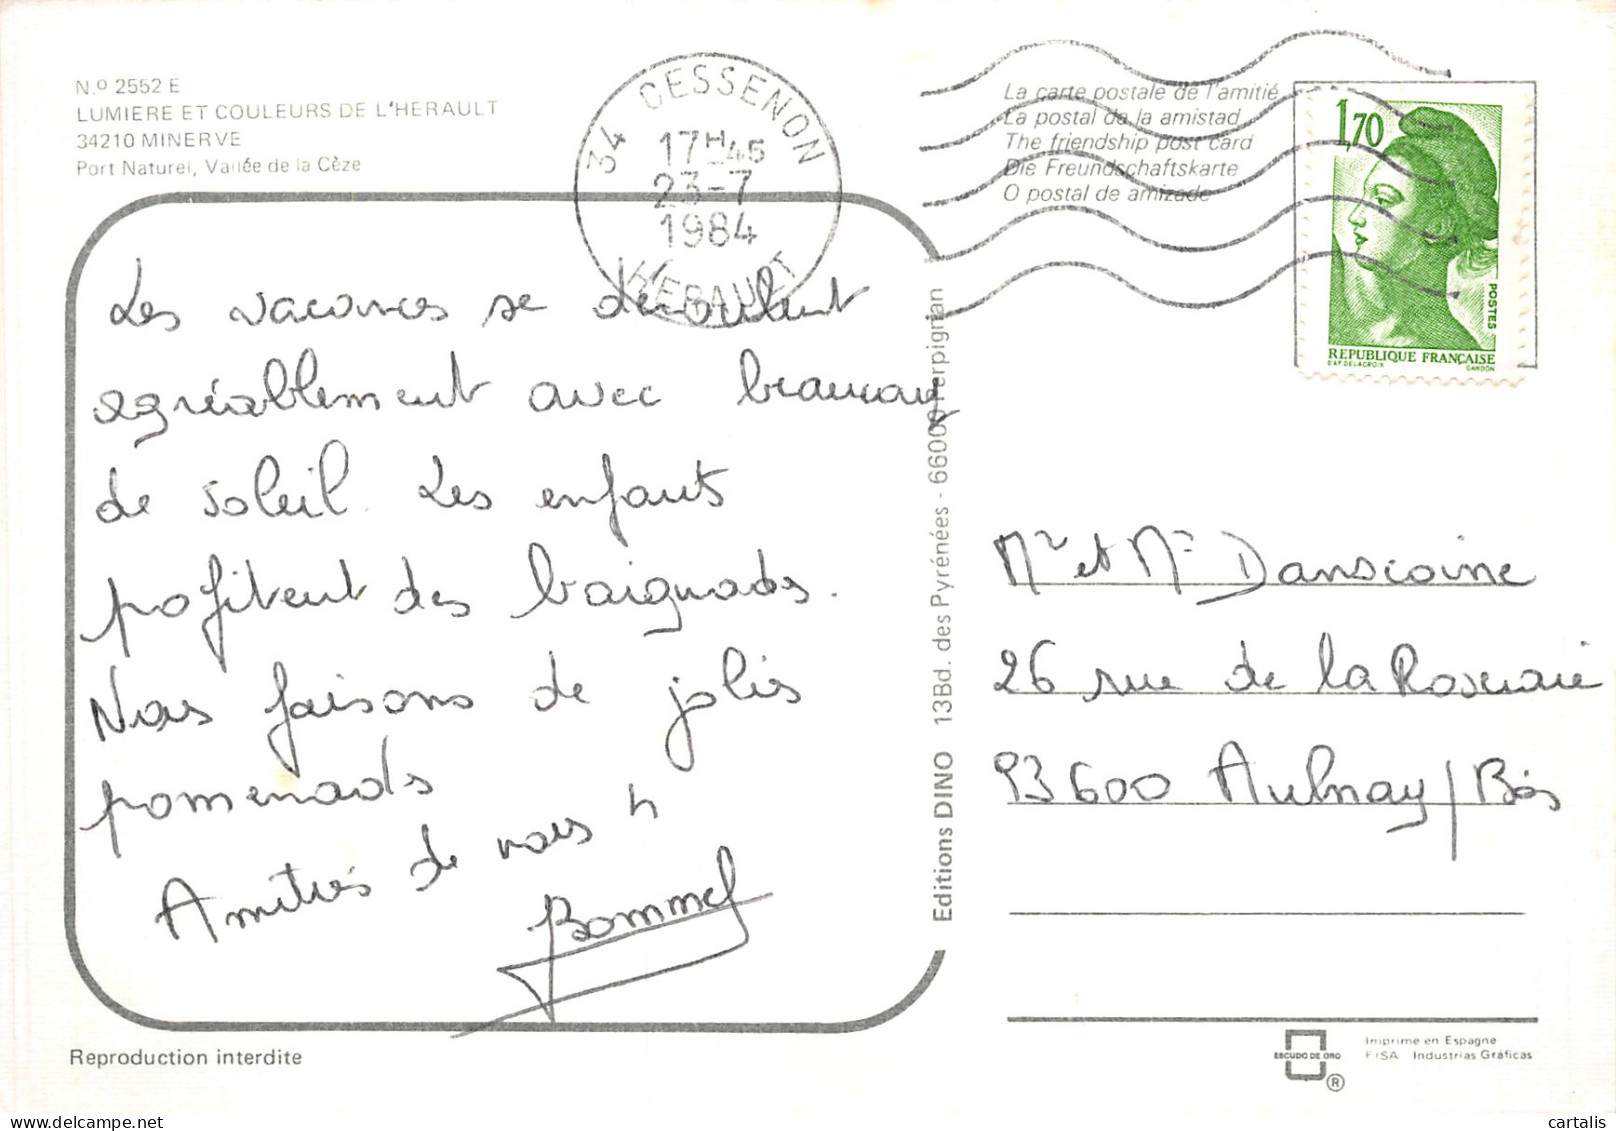 N.º 2552 E
LUMIERE ET COULEURS DE L'HERAULT
34210 MINERVE
Port Naturel, Vallée de la Cèze
34 CESSENON
17H45
23-7
1984
HERAULT
La carte postale de l'amitié
La postal de la amistad
The friendship post card
Die Freundschaftskarte
O postal de amizade
1,70
POSTES
REPUBLIQUE FRANÇAISE
D'AP. DELACROIX GANDON
Les vacances se déroulent
agréablement avec beaucoup
de soleil. Les enfants
profitent des baignades.
Nous faisons de jolies
promenades
Amitiés de nous 4
Bommel
Editions DINO 13Bd. des Pyrénées - 66000 Perpignan
Mr et Me Danscoine
26 rue de la Roseraie
93600 Aulnay/Bois
Reproduction interdite
ESCUDO DE ORO
®
Imprime en Espagne
FISA Industrias Gráficas
cartalis